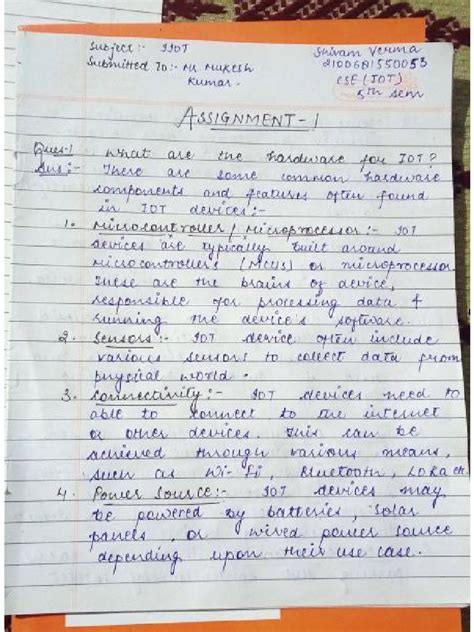 Subject:- IIOT
Shivam Verma
Submitted To:- Mr Mukesh
Kumar.
2100681550053
CSE (IOT)
5th sem
ASSIGNMENT-1
Ques-1 What are the hardware for IOT?
Ans:- There are some common hardware
components and features often found
in IOT devices:-
1. Microcontroller / Microprocessor:- IOT
devices are typically built around
microcontrollers (MCUs) or microprocessor.
These are the brains of device,
responsible for processing data &
running the device's software.
2. Sensors:- IOT device often include
various sensors to collect data from
physical world.
3. Connectivity:- IOT devices need to
able to connect to the internet
or other devices. This can be
achieved through various means,
such as Wi-Fi, Bluetooth,
4. Power Source:- IOT devices may
be powered by batteries, solar
panels, or wired power source
depending upon their use case.